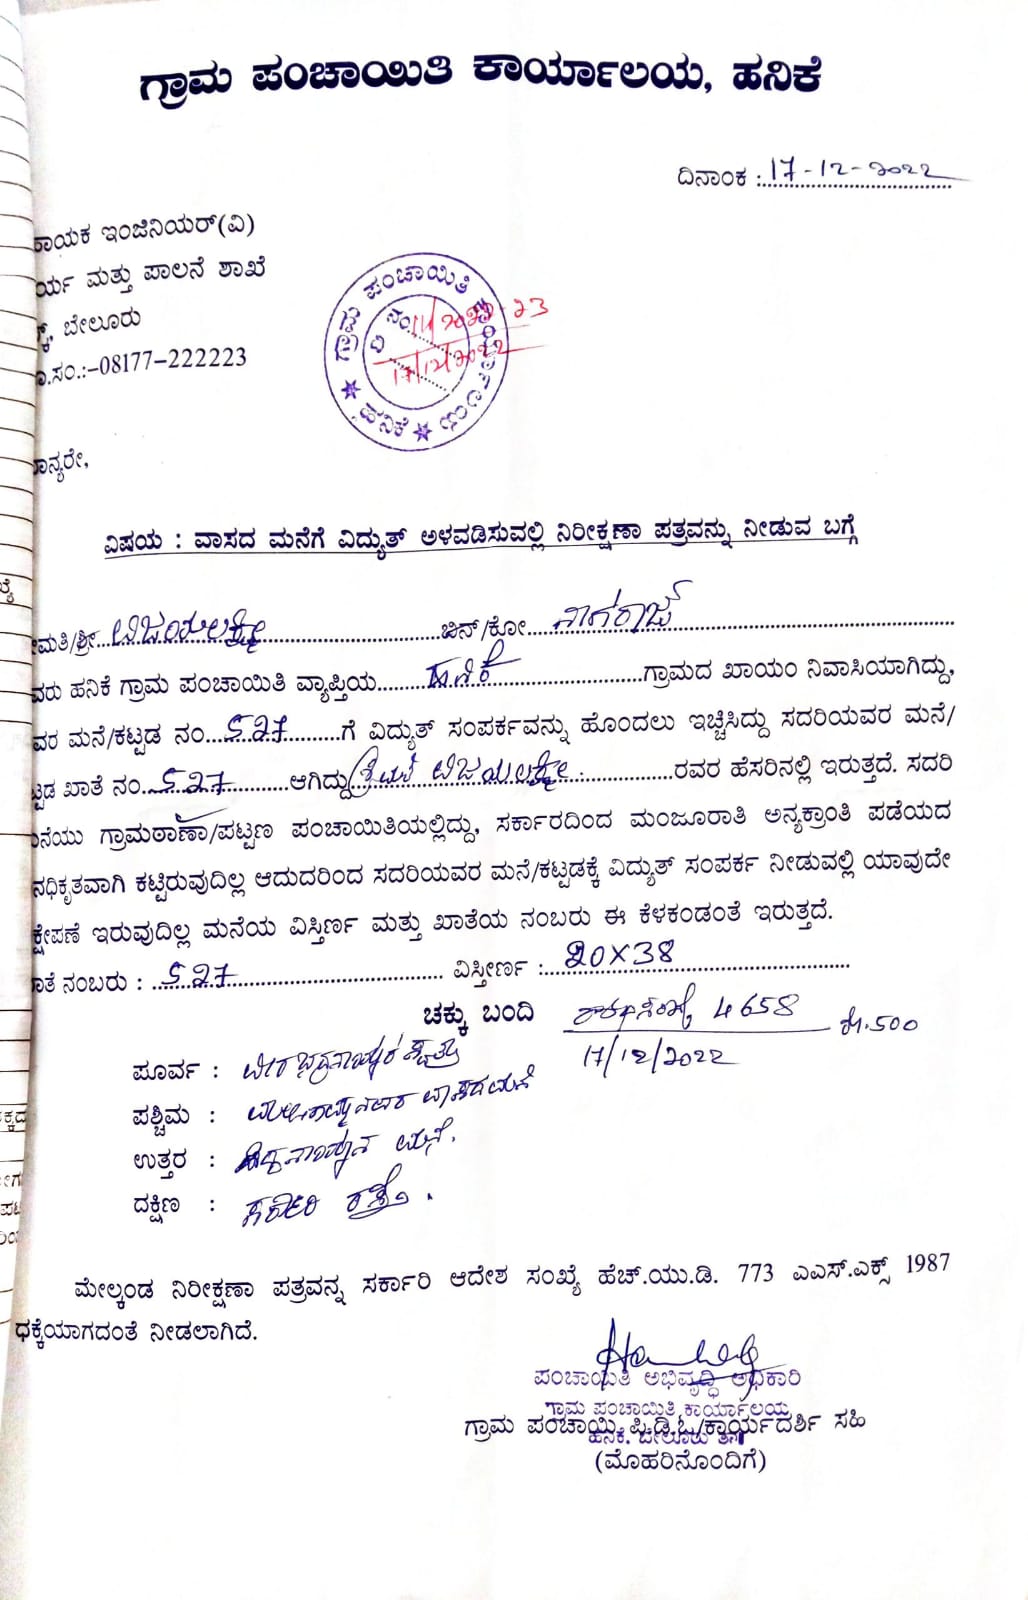 ಗ್ರಾಮ ಪಂಚಾಯಿತಿ ಕಾರ್ಯಾಲಯ, ಹನಿಕೆ
ದಿನಾಂಕ : 17-12-2022
ಾಯಕ ಇಂಜಿನಿಯರ್(ವಿ)
ರ್ಯ ಮತ್ತು ಪಾಲನೆ ಶಾಖೆ
ಬೇಲೂರು
.ಸಂ.:-08177-222223
ಗ್ರಾಮ ಪಂಚಾಯಿತಿ ಕಾರ್ಯಾಲಯ
ಹನಿಕೆ
ನಂ. 2022-23
17/12/2022
ಾನ್ಯರೇ,
ವಿಷಯ : ವಾಸದ ಮನೆಗೆ ವಿದ್ಯುತ್ ಅಳವಡಿಸುವಲ್ಲಿ ನಿರೀಕ್ಷಣಾ ಪತ್ರವನ್ನು ನೀಡುವ ಬಗ್ಗೆ
ಮತಿ/ಶ್ರೀ... ವಿಜಯಲಕ್ಷ್ಮೀ ...ಬಿನ್/ಕೋ... ನಾಗರಾಜ್
ವರು ಹನಿಕೆ ಗ್ರಾಮ ಪಂಚಾಯಿತಿ ವ್ಯಾಪ್ತಿಯ... ಹನಿಕೆ ...ಗ್ರಾಮದ ಖಾಯಂ ನಿವಾಸಿಯಾಗಿದ್ದು,
ವರ ಮನೆ/ಕಟ್ಟಡ ನಂ... 527 ...ಗೆ ವಿದ್ಯುತ್ ಸಂಪರ್ಕವನ್ನು ಹೊಂದಲು ಇಚ್ಚಿಸಿದ್ದು ಸದರಿಯವರ ಮನೆ/
ಟ್ಟಡ ಖಾತೆ ನಂ. 527 ...ಆಗಿದ್ದು ಶ್ರೀಮತಿ ವಿಜಯಲಕ್ಷ್ಮೀ ...ರವರ ಹೆಸರಿನಲ್ಲಿ ಇರುತ್ತದೆ. ಸದರಿ
ನೆಯು ಗ್ರಾಮಠಾಣಾ/ಪಟ್ಟಣ ಪಂಚಾಯಿತಿಯಲ್ಲಿದ್ದು, ಸರ್ಕಾರದಿಂದ ಮಂಜೂರಾತಿ ಅನ್ಯಕ್ರಾಂತಿ ಪಡೆಯದ
ನಧಿಕೃತವಾಗಿ ಕಟ್ಟಿರುವುದಿಲ್ಲ ಆದುದರಿಂದ ಸದರಿಯವರ ಮನೆ/ಕಟ್ಟಡಕ್ಕೆ ವಿದ್ಯುತ್ ಸಂಪರ್ಕ ನೀಡುವಲ್ಲಿ ಯಾವುದೇ
ಕ್ಷೇಪಣೆ ಇರುವುದಿಲ್ಲ ಮನೆಯ ವಿಸ್ತಿರ್ಣ ಮತ್ತು ಖಾತೆಯ ನಂಬರು ಈ ಕೆಳಕಂಡಂತೆ ಇರುತ್ತದೆ.
ಾತೆ ನಂಬರು : 527 ... ವಿಸ್ತೀರ್ಣ : 20X38
ಚಕ್ಕು ಬಂದಿ 4658
17/12/2022 500
ಪೂರ್ವ :
ಪಶ್ಚಿಮ : ವಾಸದ ಮನೆ
ಉತ್ತರ : ಮನೆ.
ದಕ್ಷಿಣ : ಸರ್ಕಾರಿ ರಸ್ತೆ.
ಮೇಲ್ಕಂಡ ನಿರೀಕ್ಷಣಾ ಪತ್ರವನ್ನ ಸರ್ಕಾರಿ ಆದೇಶ ಸಂಖ್ಯೆ ಹೆಚ್.ಯು.ಡಿ. 773 ಎಎಸ್.ಎಕ್ಸ್ 1987
ಧಕ್ಕೆಯಾಗದಂತೆ ನೀಡಲಾಗಿದೆ.
ಪಂಚಾಯಿತಿ ಅಭಿವೃದ್ಧಿ ಅಧಿಕಾರಿ
ಗ್ರಾಮ ಪಂಚಾಯಿತಿ ಕಾರ್ಯಾಲಯ
ಗ್ರಾಮ ಪಂಚಾಯ್ತಿ ಪಿ.ಡಿ.ಓ/ಕಾರ್ಯದರ್ಶಿ ಸಹಿ
ಹನಿಕೆ. ಬೇಲೂರು
(ಮೊಹರಿನೊಂದಿಗೆ)